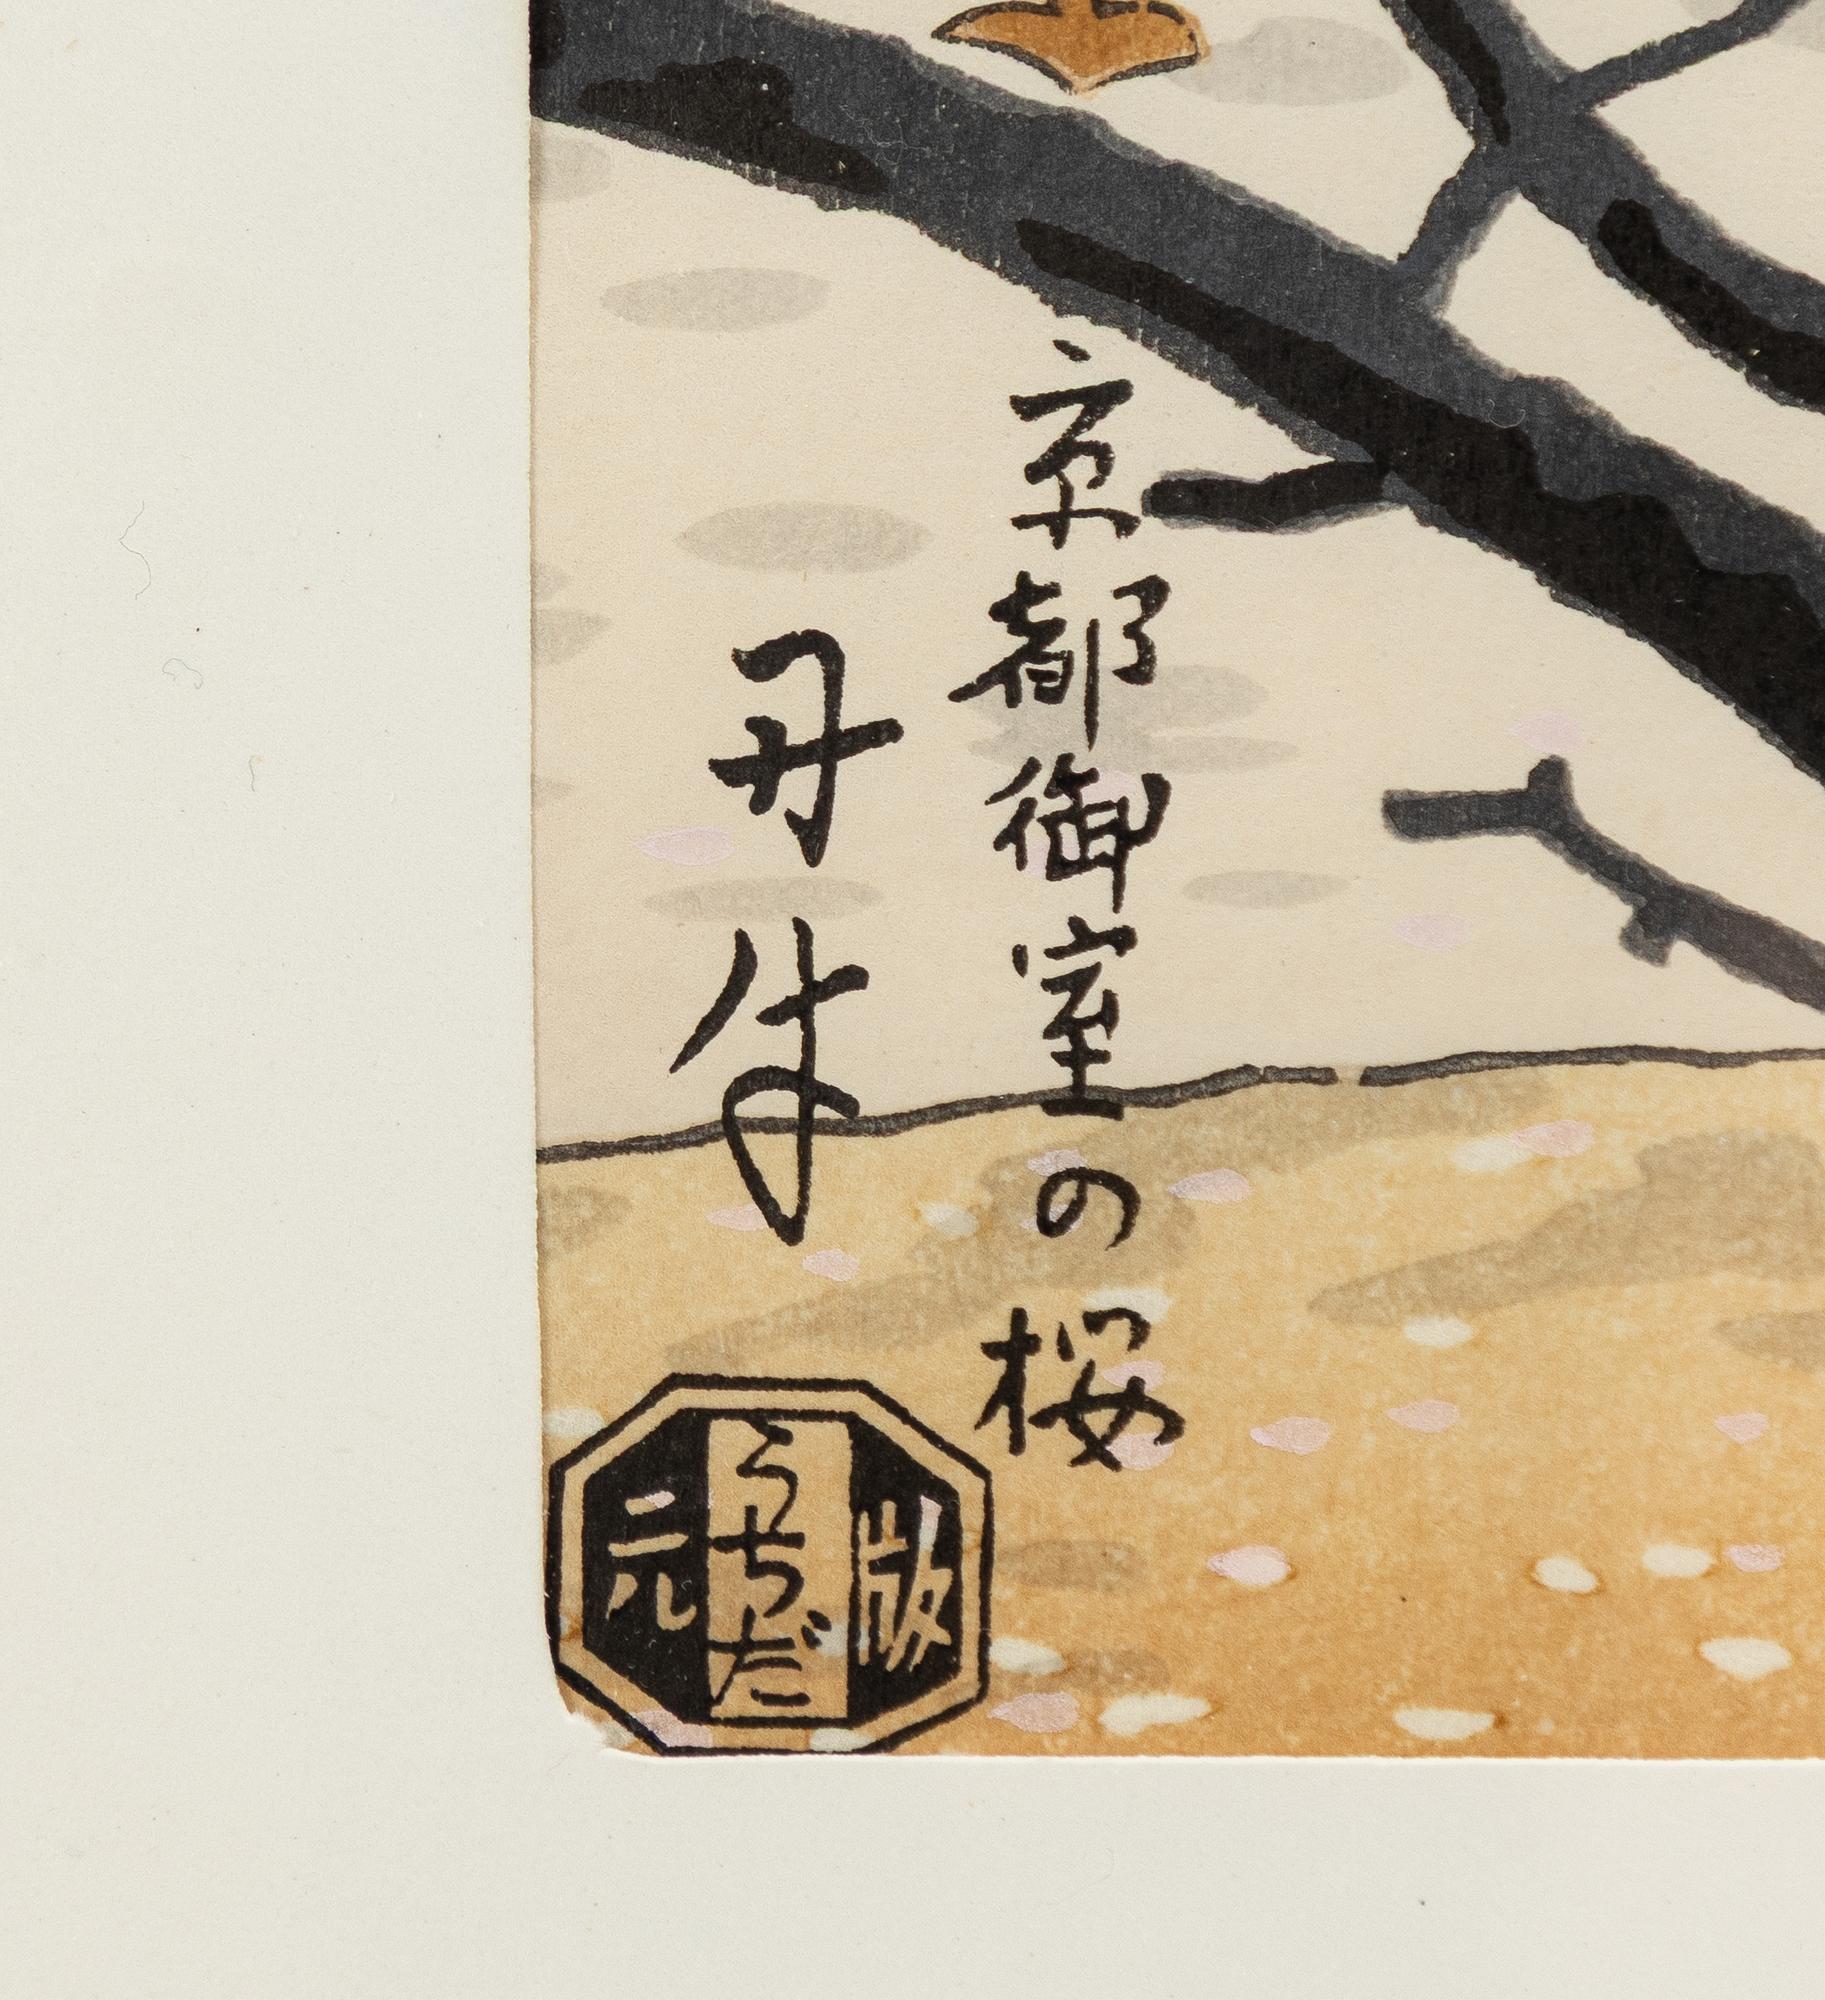 京都御室の桜
丹牛
版
うちだ
元